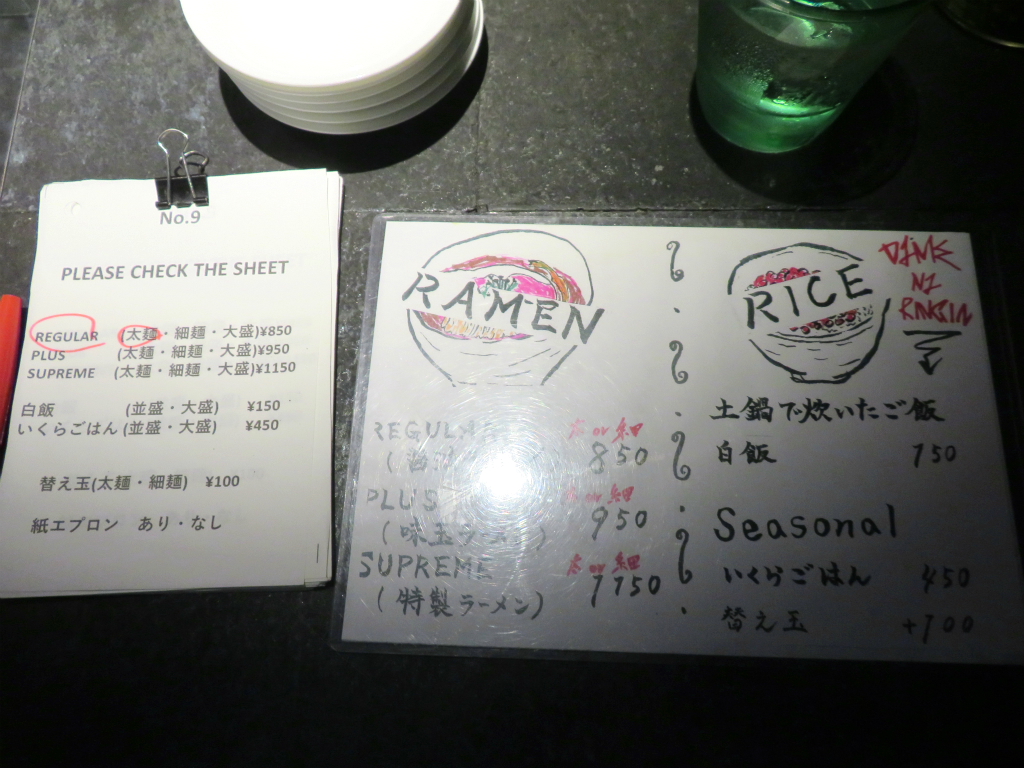 No.9
PLEASE CHECK THE SHEET
REGULAR (太麺・細麺・大盛)¥850
PLUS (太麺・細麺・大盛)¥950
SUPREME (太麺・細麺・大盛)¥1150
白飯 (並盛・大盛) ¥150
いくらごはん (並盛・大盛) ¥450
替え玉(太麺・細麺) ¥100
紙エプロン あり・なし
RAMEN
REGULAR 太 or 細
850
PLUS 太 or 細
(味玉ラーメン) 950
SUPREME 太 or 細
(特製ラーメン) 1150
RICE
土鍋で炊いたご飯
白飯 150
Seasonal
いくらごはん 450
替え玉 +100